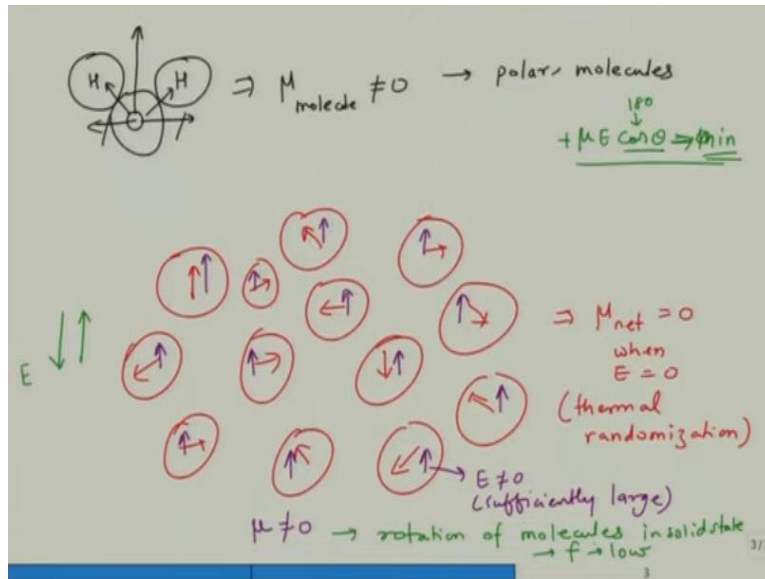 H H ⇒ μmolecule ≠ 0 → polar molecules
180
↓
+μE cosθ ⇒ min
⇒ μnet = 0
when
E = 0
(thermal
randomization)
E
E ≠ 0
(sufficiently large)
μ ≠ 0 → rotation of molecules in solid state
→ f → low
3